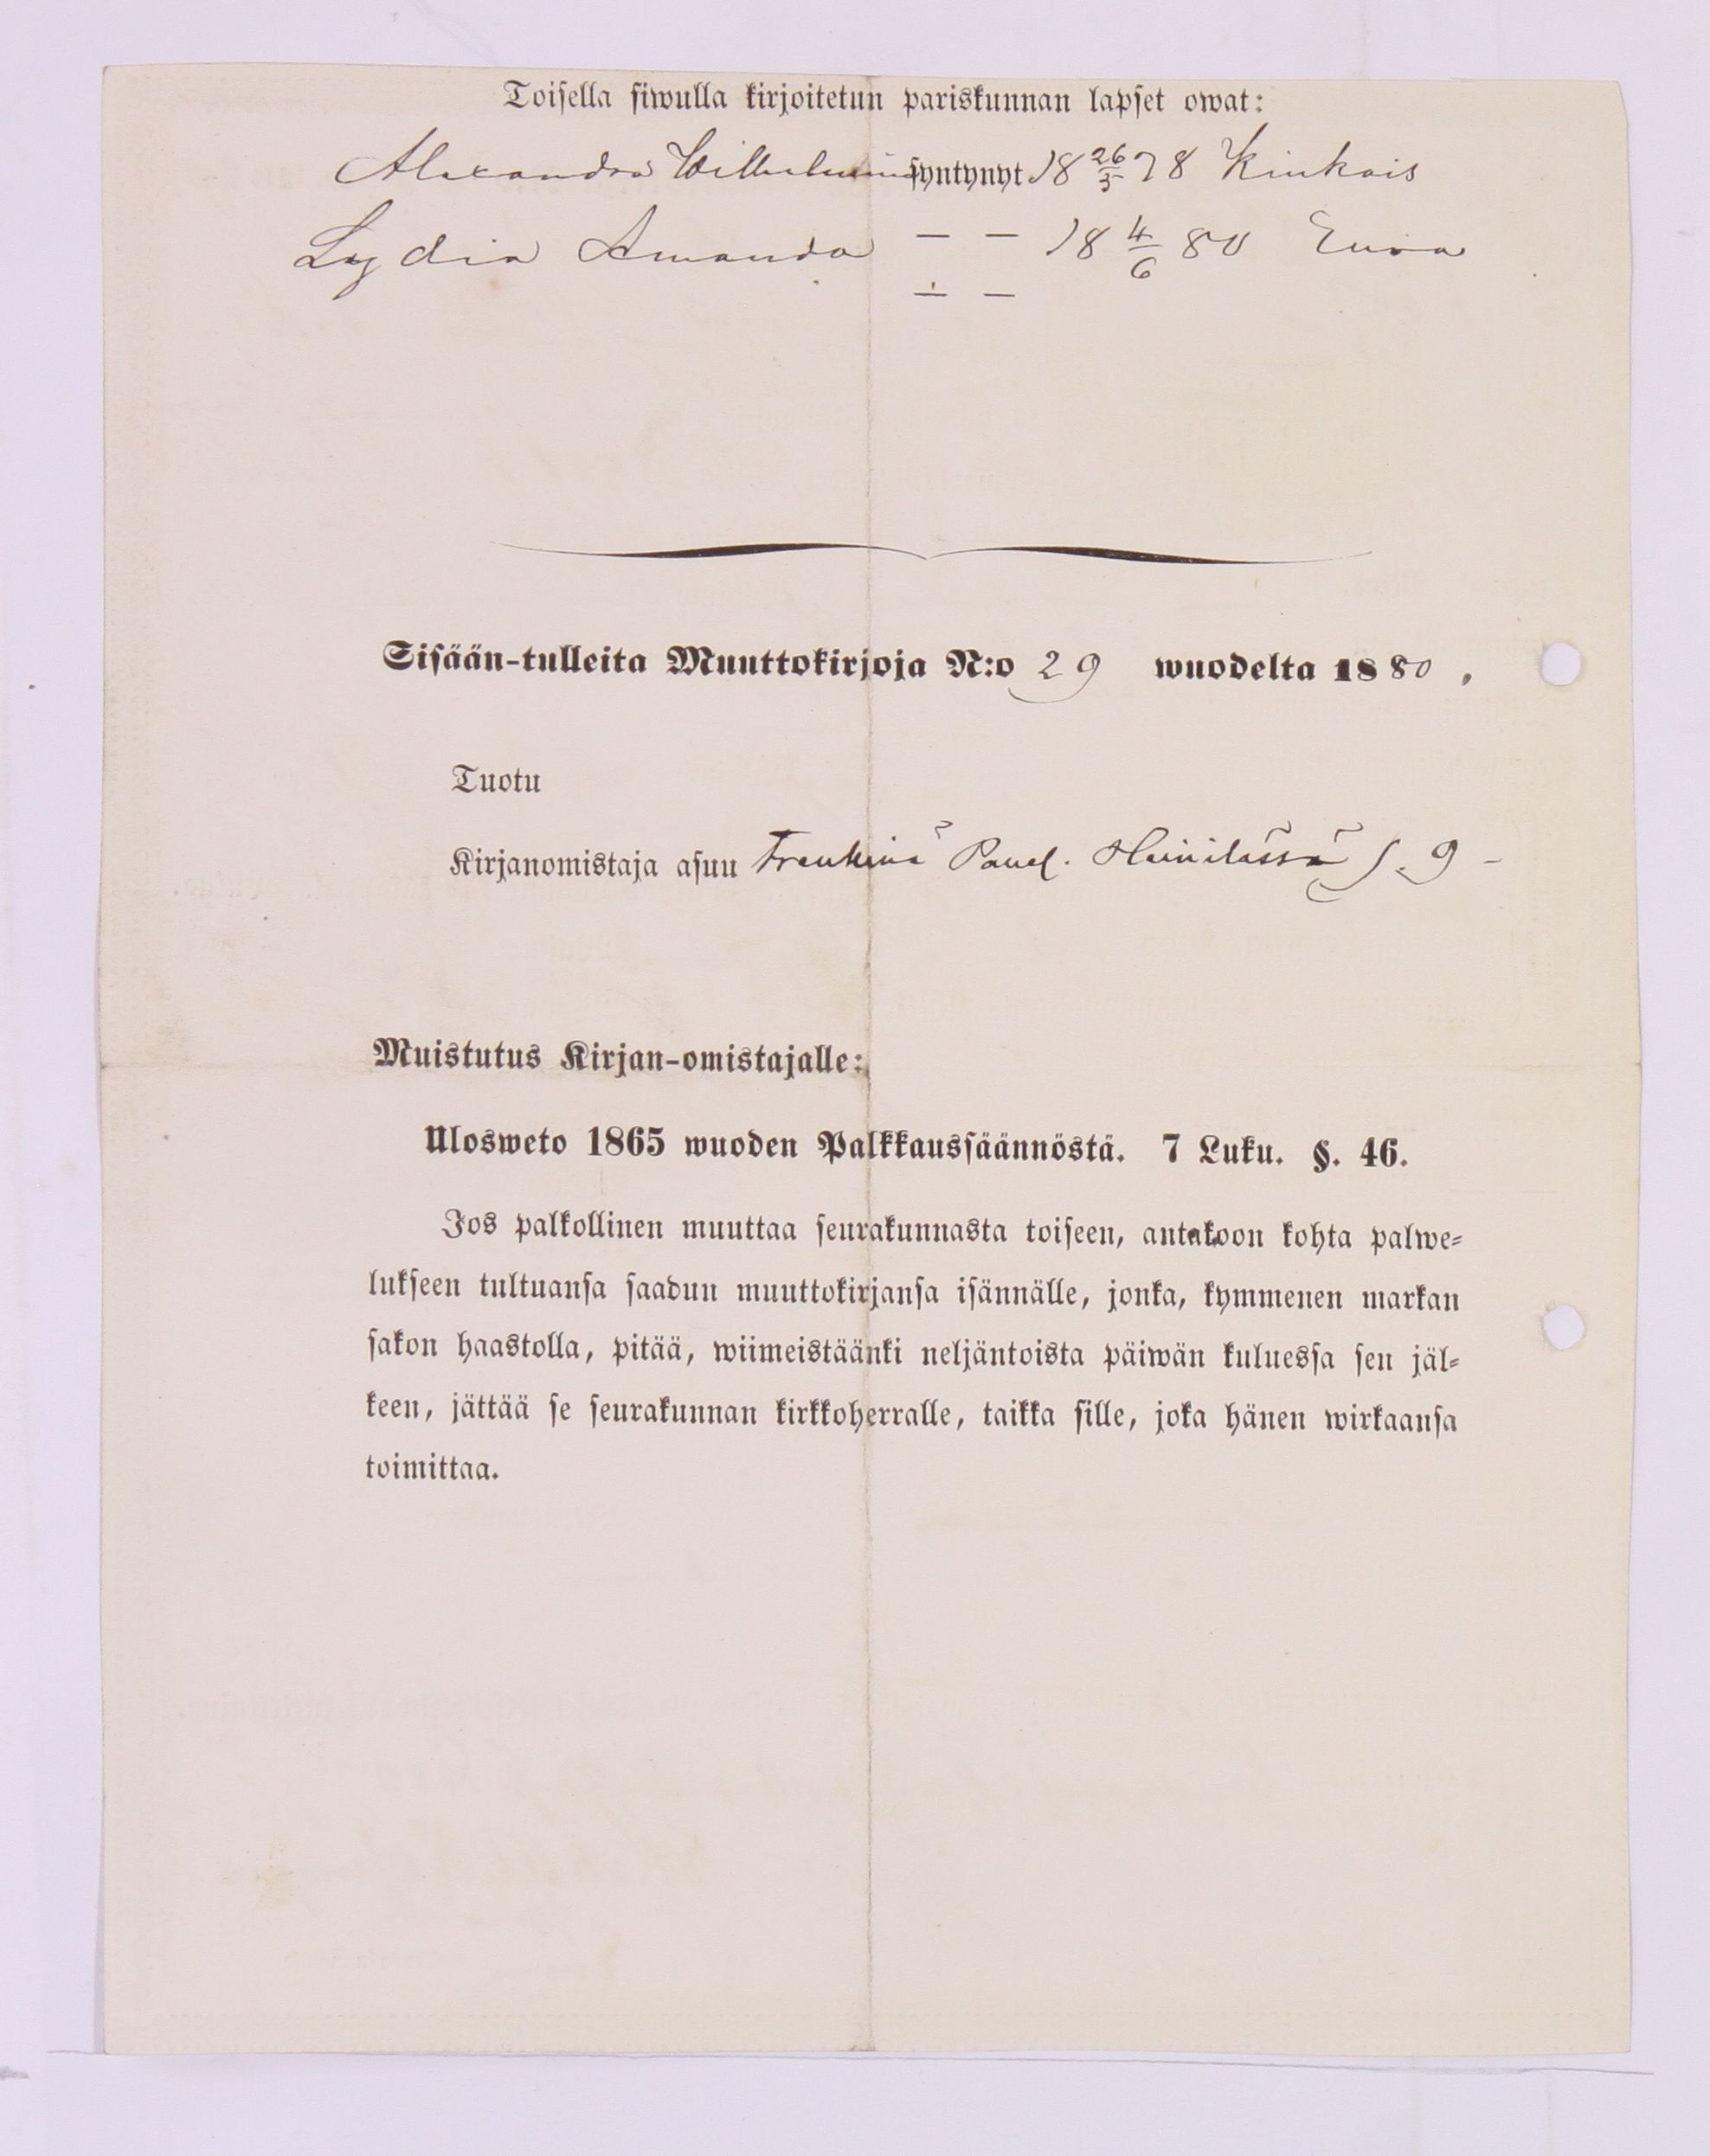 Toisella siwulla kirjoitetun pariskunnan lapset owat:
Alexandra Wilhelmina syntynyt 18 26/3 78 Kiukais
Lydia Amanda — — 18 4/6 80 Eura
— —
Sisään-tulleita Muuttokirjoja N:o 29 wuodelta 1880.
Tuotu
Kirjanomistaja asuu Heinilässä S. 9 –
Muistutus Kirjan-omistajalle:
Ulosweto 1865 wuoden Palkkaussäännöstä. 7 Luku. §. 46.
Jos palkollinen muuttaa seurakunnasta toiseen, antakoon kohta palwe-
lukseen tultuansa saadun muuttokirjansa isännälle, jonka, kymmenen markan
sakon haastolla, pitää, wiimeistäänki neljäntoista päiwän kuluessa sen jäl-
keen, jättää se seurakunnan kirkkoherralle, taikka sille, joka hänen wirkaansa
toimittaa.